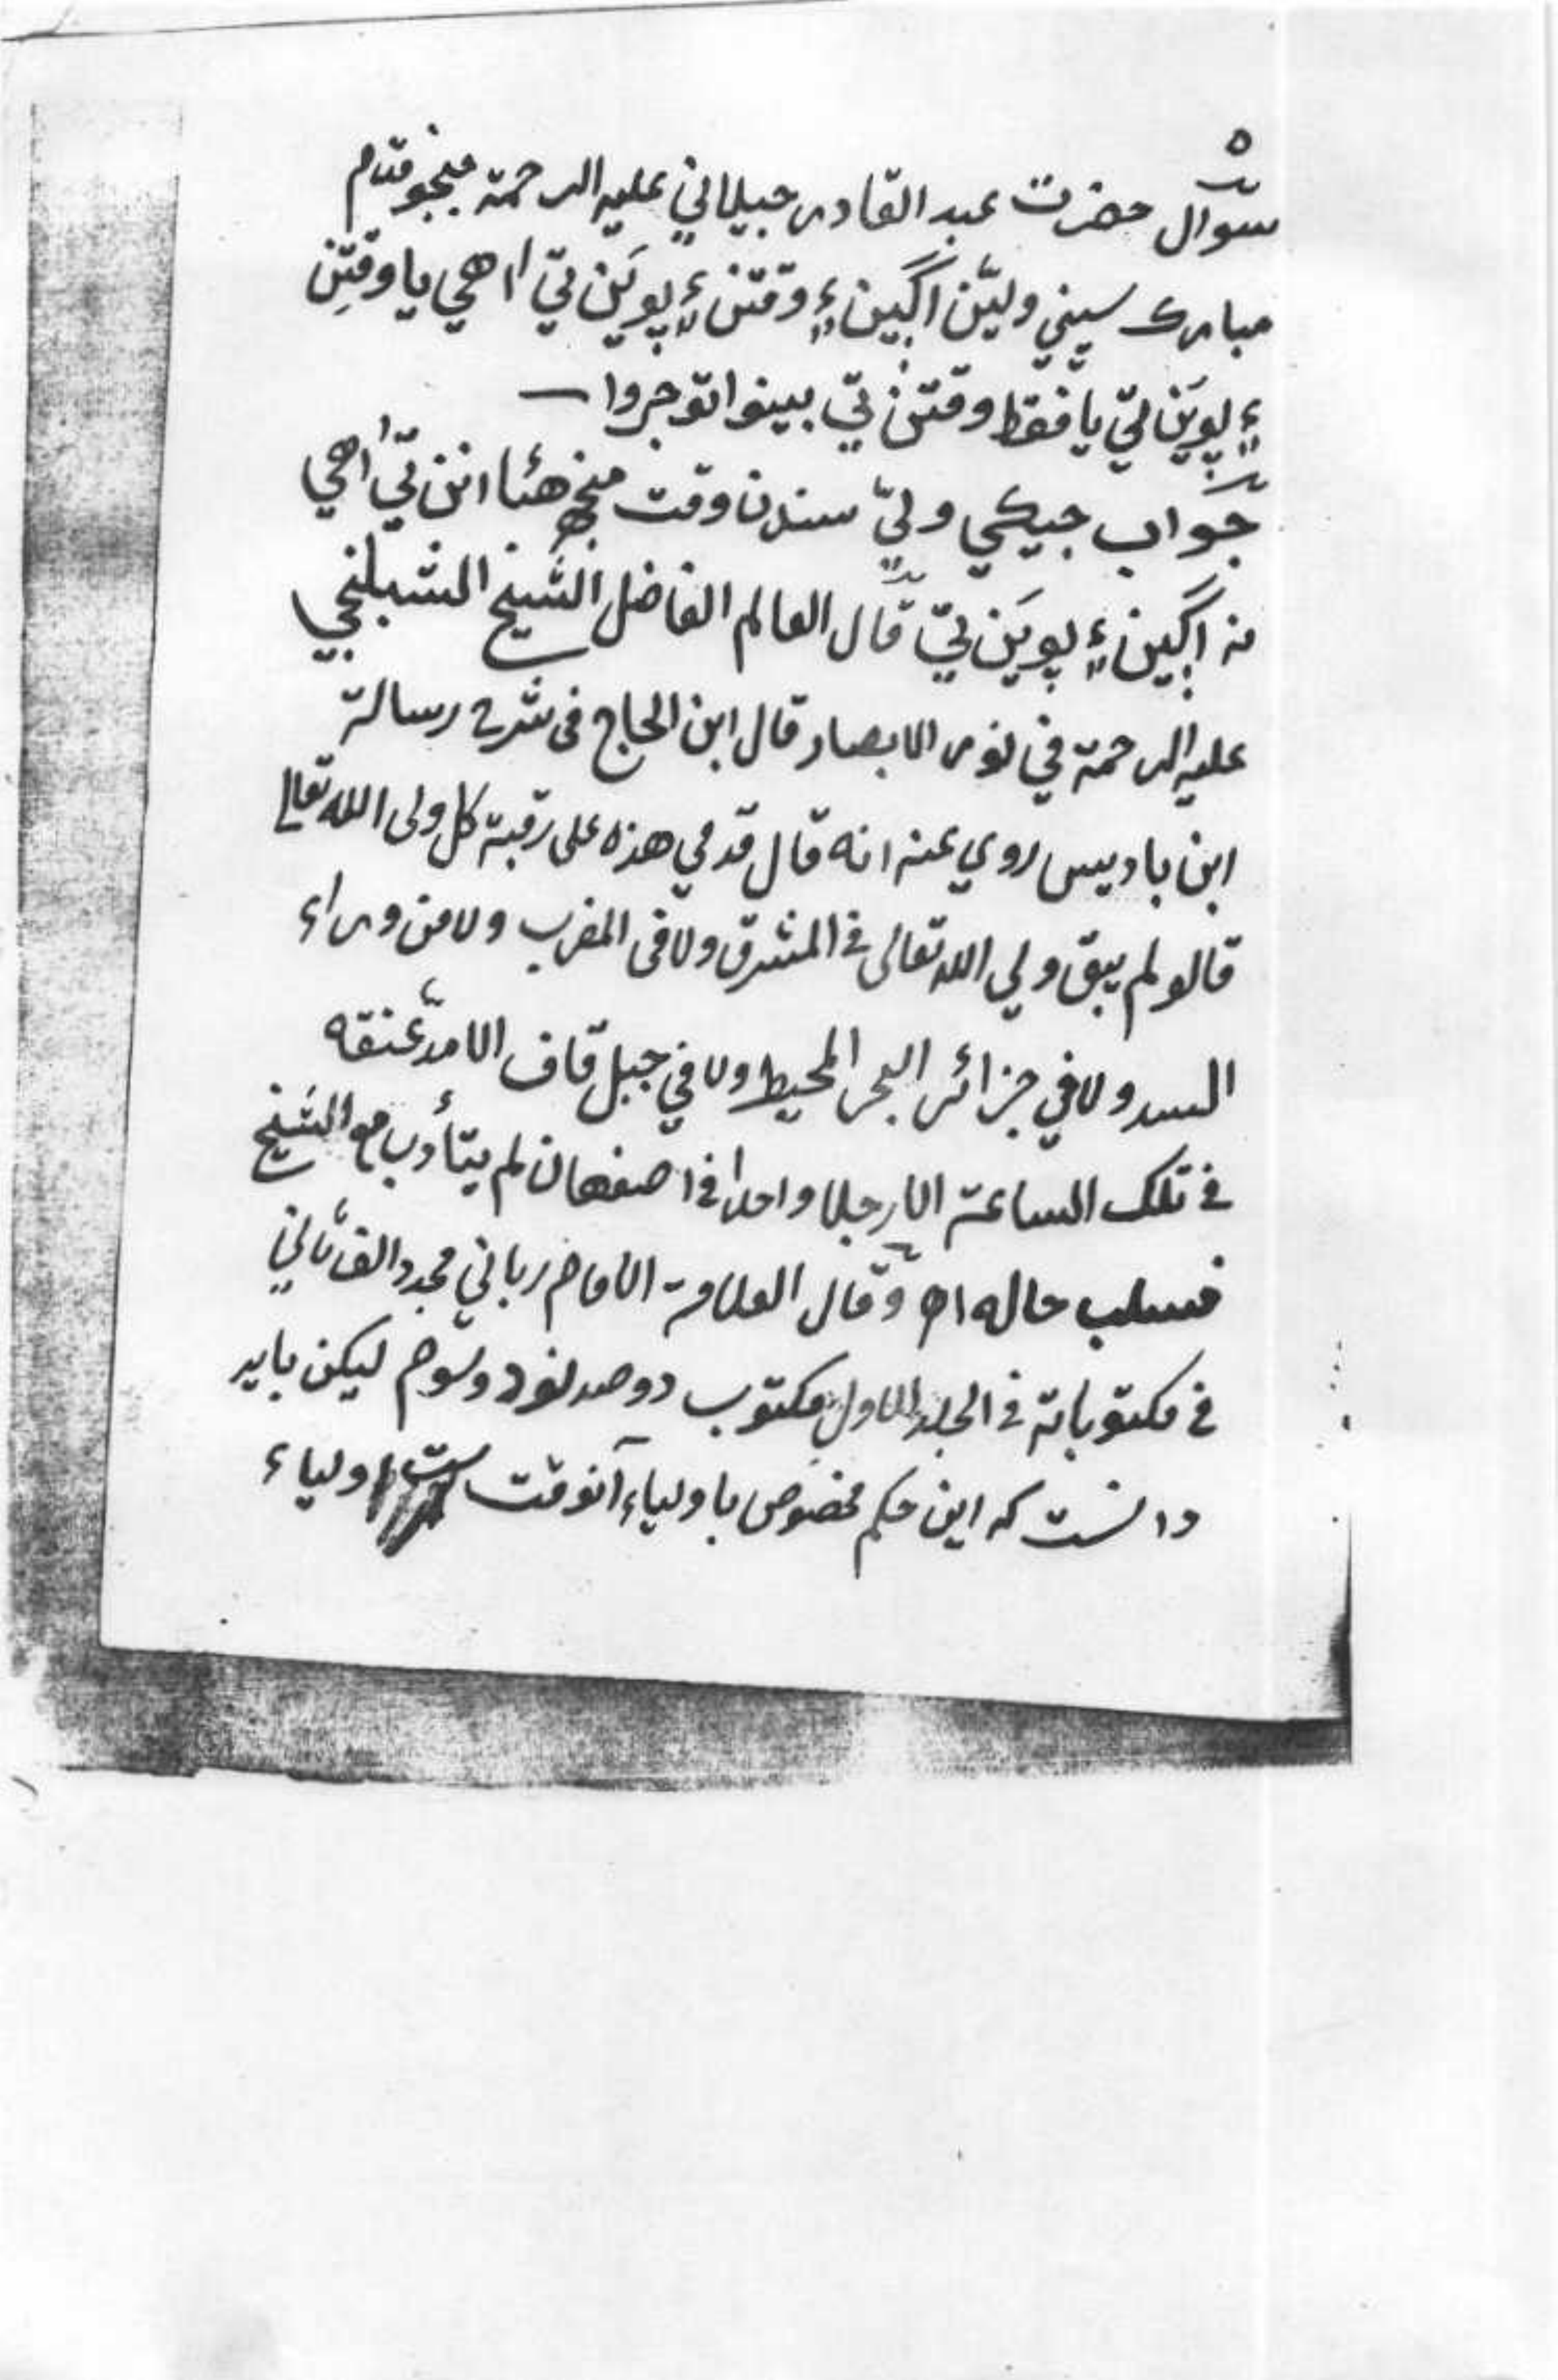 ٥
سوال حضرت عبد القادر جيلاني عليه الرحمة جنجو قدم
مبارك سيني وليّن اڳين ۽ وقتن ۽ پوين تي اهي يا وقتن
۽ پوين تي يا فقط وقتن تي بينوا توجروا
جواب جيڪي وليّ سندن وقت ۾ هئا انن تي اهي
نه اڳين ۽ پوين تي قال العالم الفاضل الشيخ الشبلنجي
عليه الرحمة في نور الابصار قال ابن الحاج في شرح رسالة
ابن باديس روي عنه انه قال قدمي هذه على رقبة كل ولى الله تعالى
قالو لم يبق ولي الله تعالى في المشرق ولا فى المغرب ولا من وراء
السد ولا في جزائر البحر المحيط ولا في جبل قاف الا مدّ عنقه
في تلك الساعة الا رجلا واحدا في اصفهان لم يتأدب مع الشيخ
فسلب حاله اه وقال العلامة الامام رباني مجدد الف ثاني
في مكتوباته في الجلد الاول مكتوب دو صد نود وسوم ليكن بايد
دانست كه اين حكم مخصوص باولياء آنوقت ست اولياء